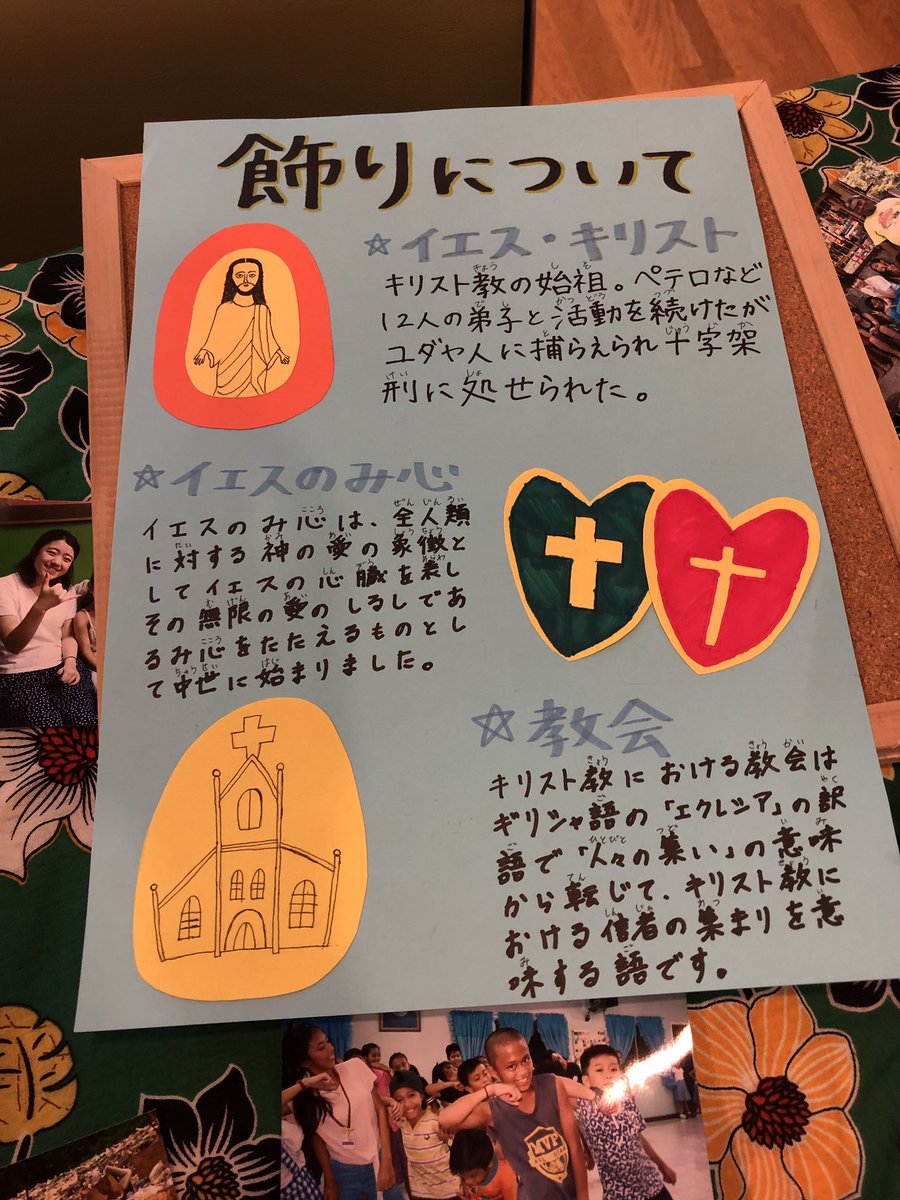 飾りについて
☆イエス・キリスト
キリスト教の始祖。ペテロなど
12人の弟子と活動を続けたが
ユダヤ人に捕らえられ十字架
刑に処せられた。
☆イエスのみ心
イエスのみ心は、全人類
に対する神の愛の象徴と
してイエスの心臓を表し
その無限の愛のしるしであ
るみ心をたたえるものとし
て中世に始まりました。
☆教会
キリスト教における教会は
ギリシャ語の「エクレシア」の訳
語で「人々の集い」の意味
から転じて、キリスト教に
おける信者の集まりを意
味する語です。
MVP